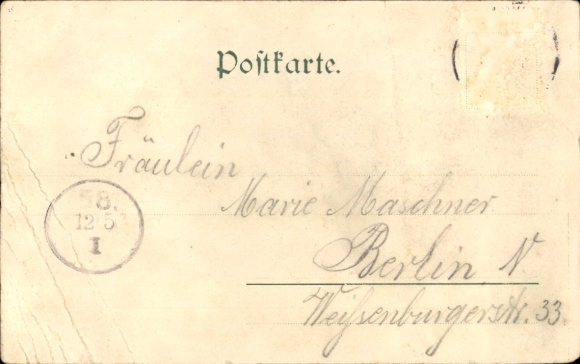 Postkarte.
Fräulein
Marie Maschner
Berlin N
Weißenburgerstr. 33.
58.
12 5
I